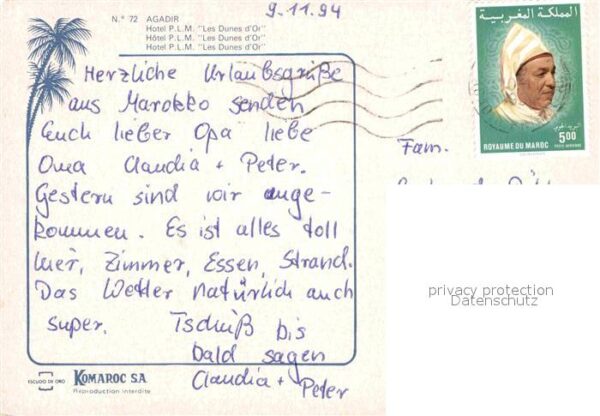 9.11.94
N.° 72 AGADIR
Hotel P.L.M. "Les Dunes d'Or"
Hôtel P.L.M. "Les Dunes d'Or"
Hotel P.L.M. "Les Dunes d'Or"
المملكة المغربية
البريد الجوي
5,00
ROYAUME DU MAROC POSTE AERIENNE
Herzliche Urlaubsgrüße
aus Marokko senden
Euch lieber Opa liebe
Oma Claudia + Peter.
Gestern sind wir ange-
kommen. Es ist alles toll
hier, Zimmer, Essen, Strand.
Das Wetter natürlich auch
super. Tschüß bis
bald sagen
Claudia + Peter
Fam.
privacy protection
Datenschutz
ESCUDO DE ORO
KOMAROC S.A
Reproduction interdite